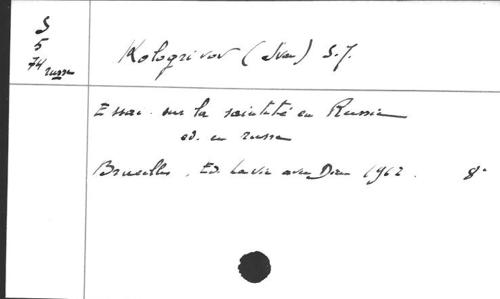 S
5
74 russe
Kologrivov (Ivan) S.J.
Essai sur la sainteté en Russie
ed. en russe
Bruxelles, Ed. La vie avec Dieu 1962. 8°